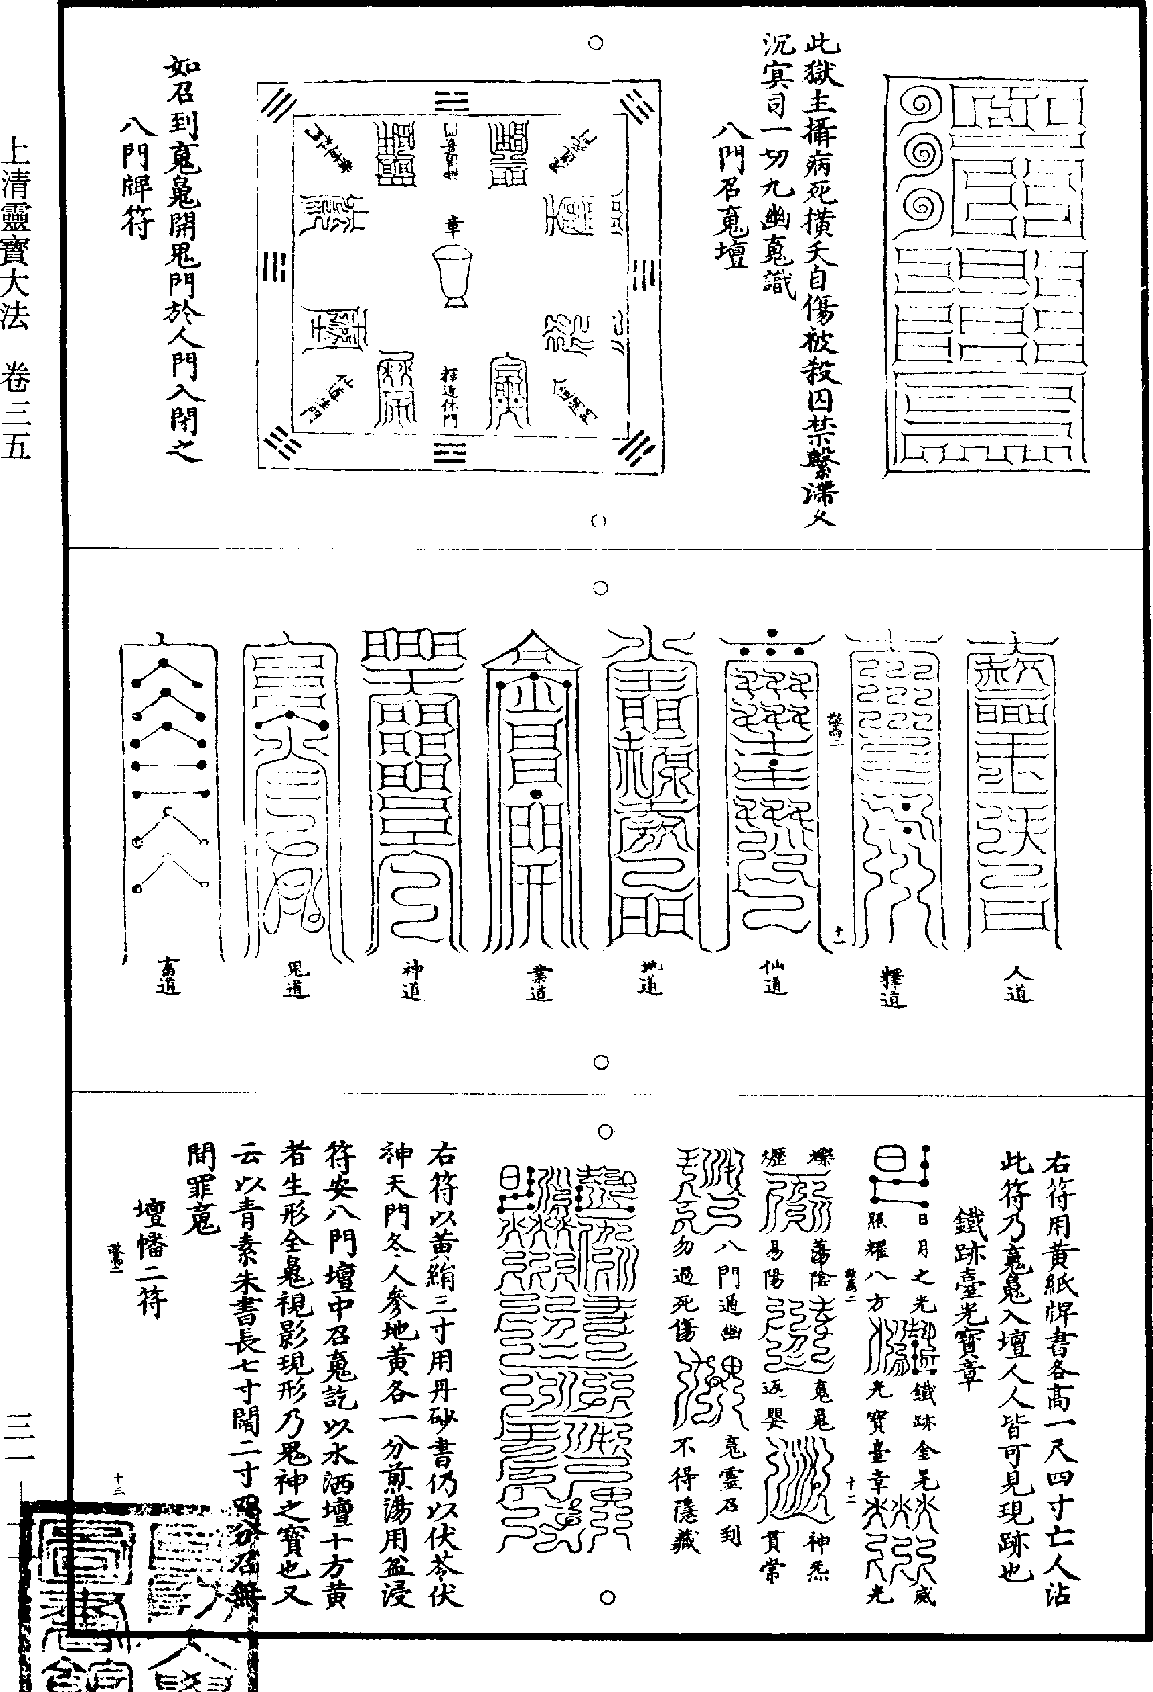 上清靈寶大法　卷三五
三一
此獄主攝病死橫夭自傷被殺囚禁繫滯久
沉冥司一切九幽䰟識
八門召䰟壇
章
如召到䰟䰟開鬼門於人門入閉之
八門牌符
人道
釋道
仙道
地道
業道
神道
鬼道
畜道
右符用黃紙牌書各高一尺四寸亡人沾
此符乃䰟䰟入壇人人皆可見現跡也
鐵跡臺光寶章
日月之光
鐵跡金光
威
照耀八方
光寶臺章
光
蕩陰
神炁
易陽
返嬰
貫常
八門通幽
䰟靈召到
勿過死傷
不得隱藏
右符以黃絹三寸用丹砂書仍以茯苓伏
神天門冬人參地黃各一分煎湯用盆浸
符安八門壇中召䰟訖以水洒壇十方黃
者生形全䰟視影現形乃鬼神之寶也又
云以青素朱書長七寸闊二寸四分召無
間罪䰟
壇幡二符